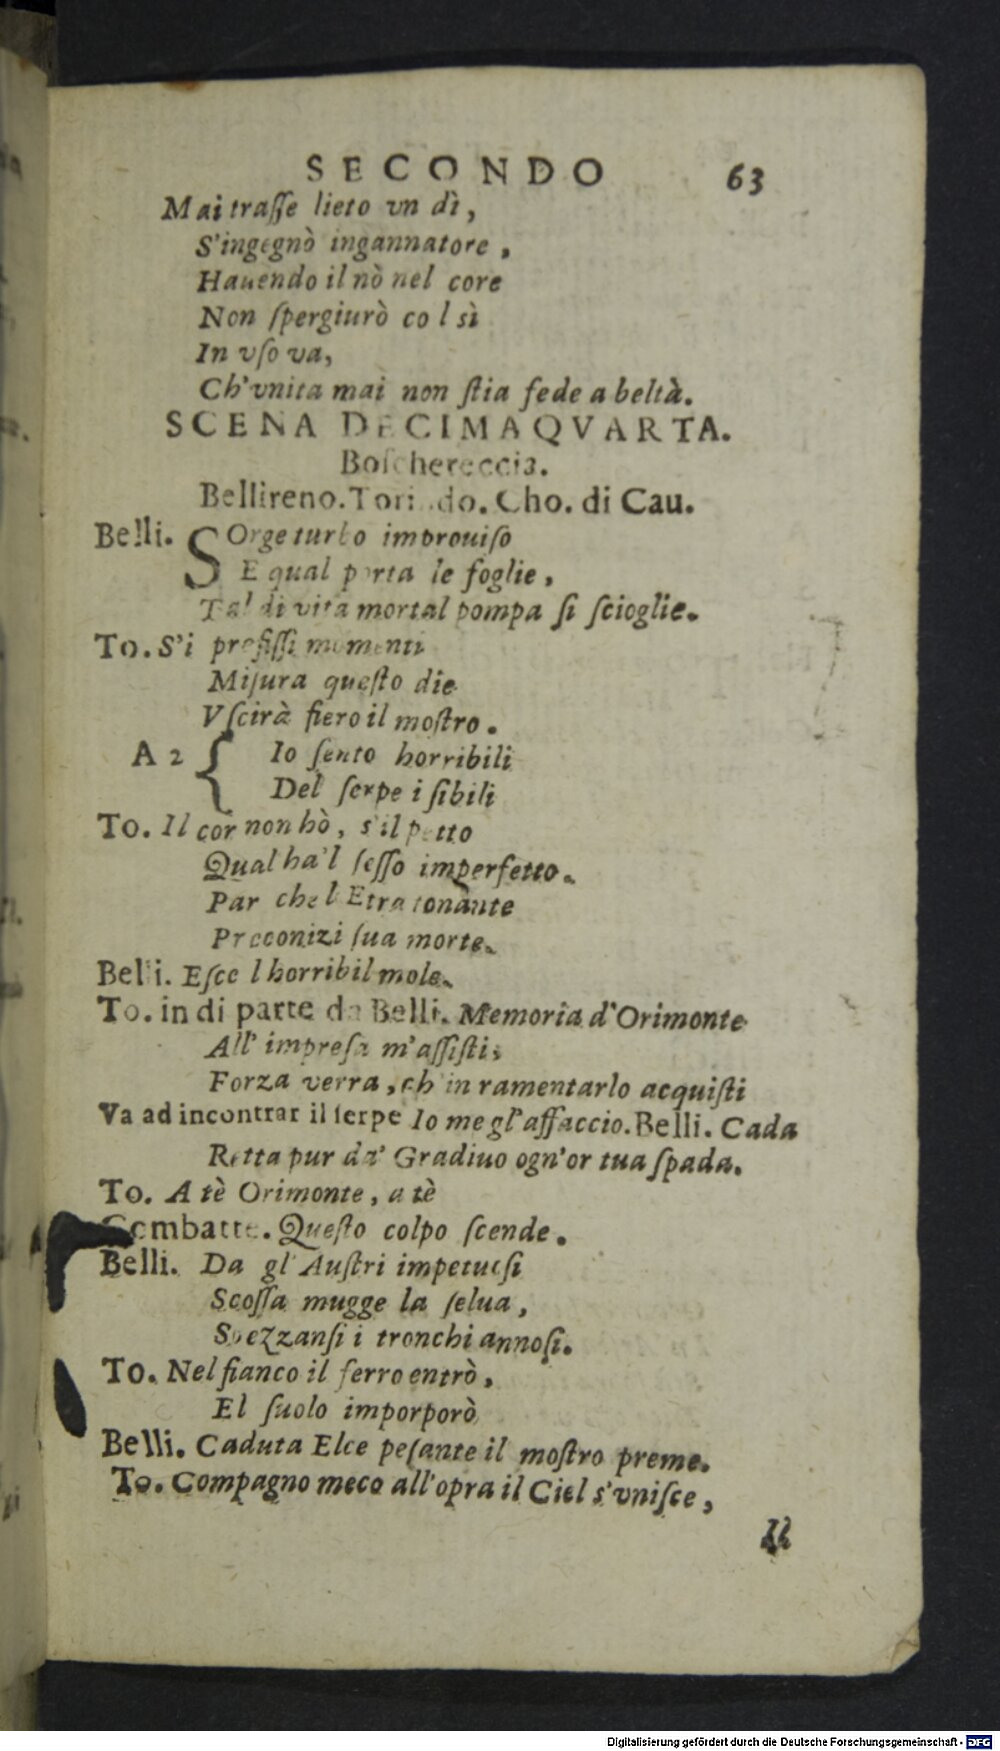 SECONDO 63
Mai traſſe lieto vn dì,
S'ingegnò ingannatore,
Hauendo il nò nel core
Non ſpergiurò co l sì
In vſo va,
Ch'vnita mai non ſtia fede a beltà.
SCENA DECIMAQVARTA.
Boſchereccia.
Bellireno. Torindo. Cho. di Cau.
Belli. SOrge turbo improuiſo
E qual porta le foglie,
Tal di vita mortal pompa ſi ſcioglie.
To. S'i prefiſſi momenti
Miſura queſto die
Vſcirà fiero il moſtro.
A 2 { Io ſento horribili
Del ſerpe i ſibili
To. Il cor non hò, s'il petto
Qual ha'l ſeſſo imperfetto.
Par che l Etra tonante
Preconizi ſua morte.
Belli. Eſce l horribil mole.
To. in di parte da Belli. Memoria d'Orimonte
All' impreſa m'aſſiſti,
Forza verra, ch' in ramentarlo acquiſti
Va ad incontrar il ſerpe Io me gl'affaccio. Belli. Cada
Retta pur da' Gradiuo ogn'or tua ſpada.
To. A tè Orimonte, a tè
Combatte. Queſto colpo ſcende.
Belli. Da gl' Auſtri impetuoſi
Scoſſa mugge la ſelua,
Spezzanſi i tronchi annoſi.
To. Nel fianco il ferro entrò,
El ſuolo imporporò
Belli. Caduta Elce peſante il moſtro preme.
To. Compagno meco all'opra il Ciel s'vniſce,
Il
Digitalisierung gefördert durch die Deutsche Forschungsgemeinschaft - DFG